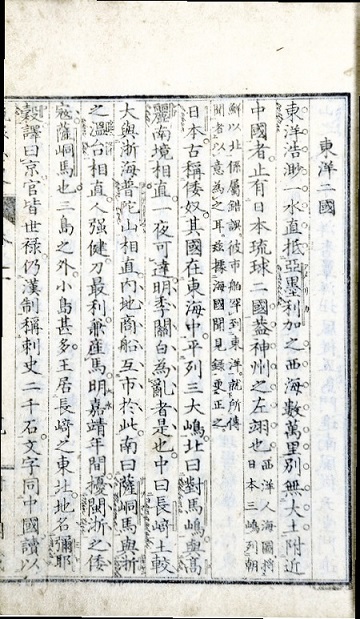 東洋二國
東洋浩渺一水直抵亞墨利加之西海數萬里別無大土附近
中國者止有日本琉球二國蓋神州之左翊也西洋人海圖將日本三嶋列朝
鮮以北係屬錯誤彼市舶罕到東洋就所傳聞者以意爲之耳玆據海國聞見錄更正之
日本古稱倭奴其國在東海中平列三大嶋北曰對馬嶋與高
麗南境相直一夜可達明季關白為亂者是也中曰長﨑土較
大與浙海普陀山相直内地商船互市於此南曰薩峒馬與浙
之溫台相直人强健刀最利兼產馬明嘉靖年間擾閩浙之倭
寇薩峒馬也三島之外小島甚多王居長﨑之東北地名彌耶
穀譯曰京官皆世禄仍漢制稱刺史二千石文字同中國讀以